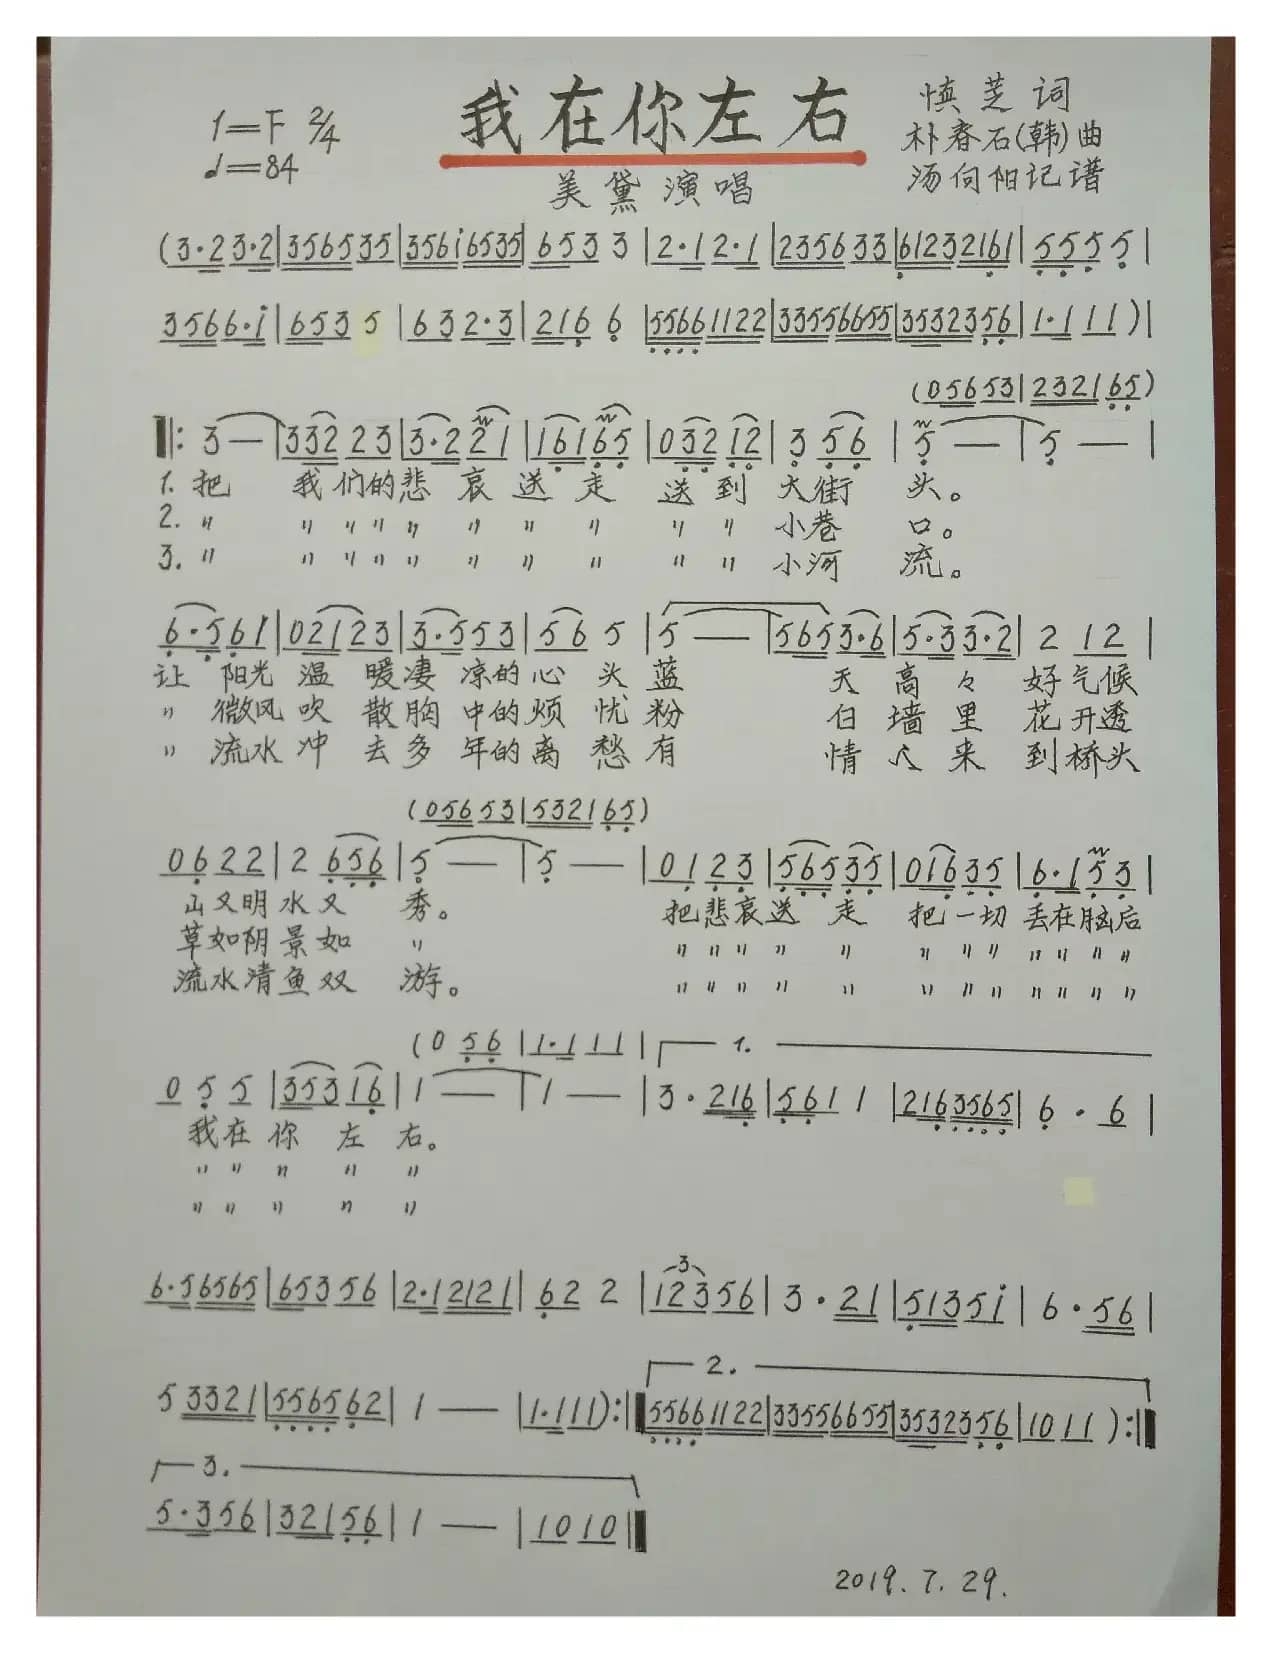 1=F 2/4
♩=84
我在你左右
美黛演唱
慎芝词
朴春石(韩)曲
汤向阳记谱
(3·2 3·2|3565 35|356i 6535|653 3|2·1 2·1|2356 33|6123 2161|555 5|
3566·i|653 5|63 2·3|216 6|5566 1122|3355 6655|3532 356|1·1 11)|
(056 53|2321 65)
‖: 3 —|332 23|3·2 21|161 65|032 12|3 56|5 —|5 —|
1. 把 我们的悲哀送走 送到大街 头。
2. 〃 〃〃〃〃〃〃〃 〃〃小巷 口。
3. 〃 〃〃〃〃〃〃〃 〃〃小河 流。
6·5 61|0212 3|3·5 53|56 5|5 —|565 3·6|5·3 3·2|2 12|
让 阳光温 暖凄凉的心头蓝 天高々好气候
〃 微风吹 散胸中的烦忧粉 白墙里花开透
〃 流水冲 去多年的离愁有 情人来到桥头
(056 53|5321 65)
06 22|2 656|5 —|5 —|01 23|565 35|016 35|6·1 53|
山又明水又 秀。 把悲哀送 走 把一切丢在脑后
草如阴景如 〃 〃〃〃〃 〃 〃〃〃〃〃〃〃
流水清鱼双 游。 〃〃〃〃 〃 〃〃〃〃〃〃〃
(0 56|1·1 11| 1.
0 5 5|353 16|1 —|1 —|3·216|561 1|216 3565|6·6|
我在你 左 右。
〃〃〃 〃 〃
〃〃〃 〃 〃
6·5 6565|653 56|2·1 2121|62 2|123 56|3·21|513 5i|6·56|
3
2.
5 3321|5565 62|1 —|1·1 11):‖5566 1122|3355 6655|3532 356|10 11):‖
3.
5·3 56|321 56|1 —|10 10‖
2019.7.29.